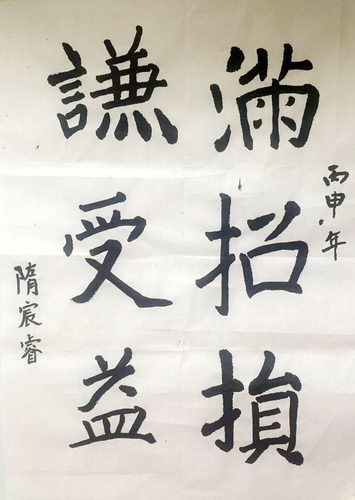 丙申年
滿招損
謙受益
隋宸睿